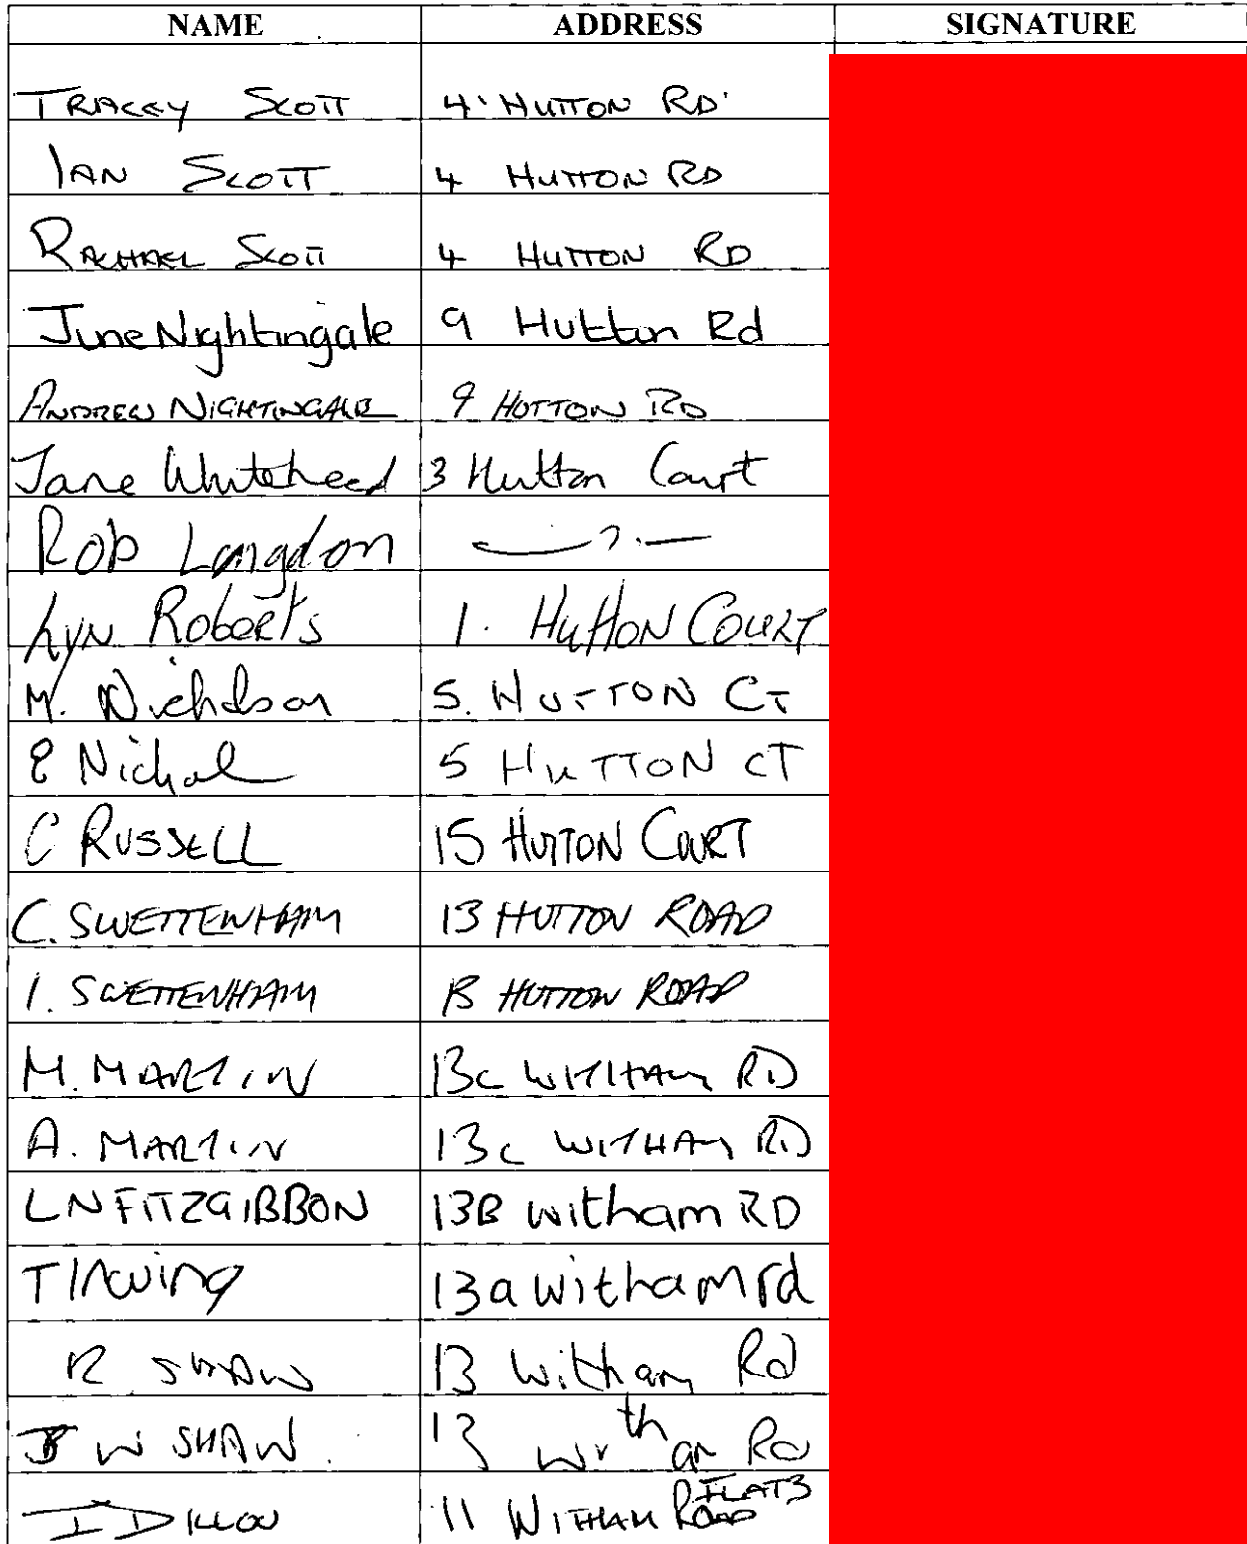 NAME ADDRESS SIGNATURE
TRACEY SCOTT 4 HUTTON RD
IAN SCOTT 4 HUTTON RD
RACHAEL SCOTT 4 HUTTON RD
June Nightingale 9 Hutton Rd
ANDREW NIGHTINGALE 9 HUTTON RD
Jane Whitehead 3 Hutton Court
Rob Langdon —?.—
Lyn Roberts 1. Hutton Court
M. Nicholson 5. HUTTON CT
E Nichol 5 HuTTON CT
C RUSSELL 15 HUTTON COURT
C. SWETTENHAM 13 HUTTON ROAD
I. SWETTENHAM 13 HUTTON ROAD
M. MARTIN 13c WITHAM RD
A. MARTIN 13c WITHAM RD
LN FITZGIBBON 13B Witham RD
T Irwing 13a Witham rd
R SHAW 13 Witham Rd
W SHAW. 13 Witham Rd
I DILLON 11 WITHAM ROAD FLAT 3